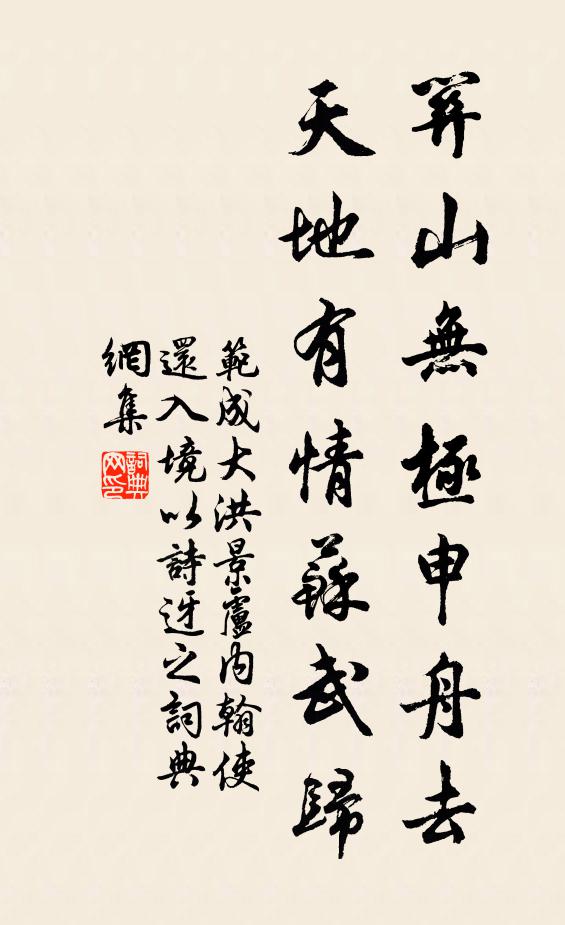 關山無極申舟去
天地有情蘇武歸
範成大洪景盧內翰使
還入境以詩迓之詞典
網集
詞典
网印